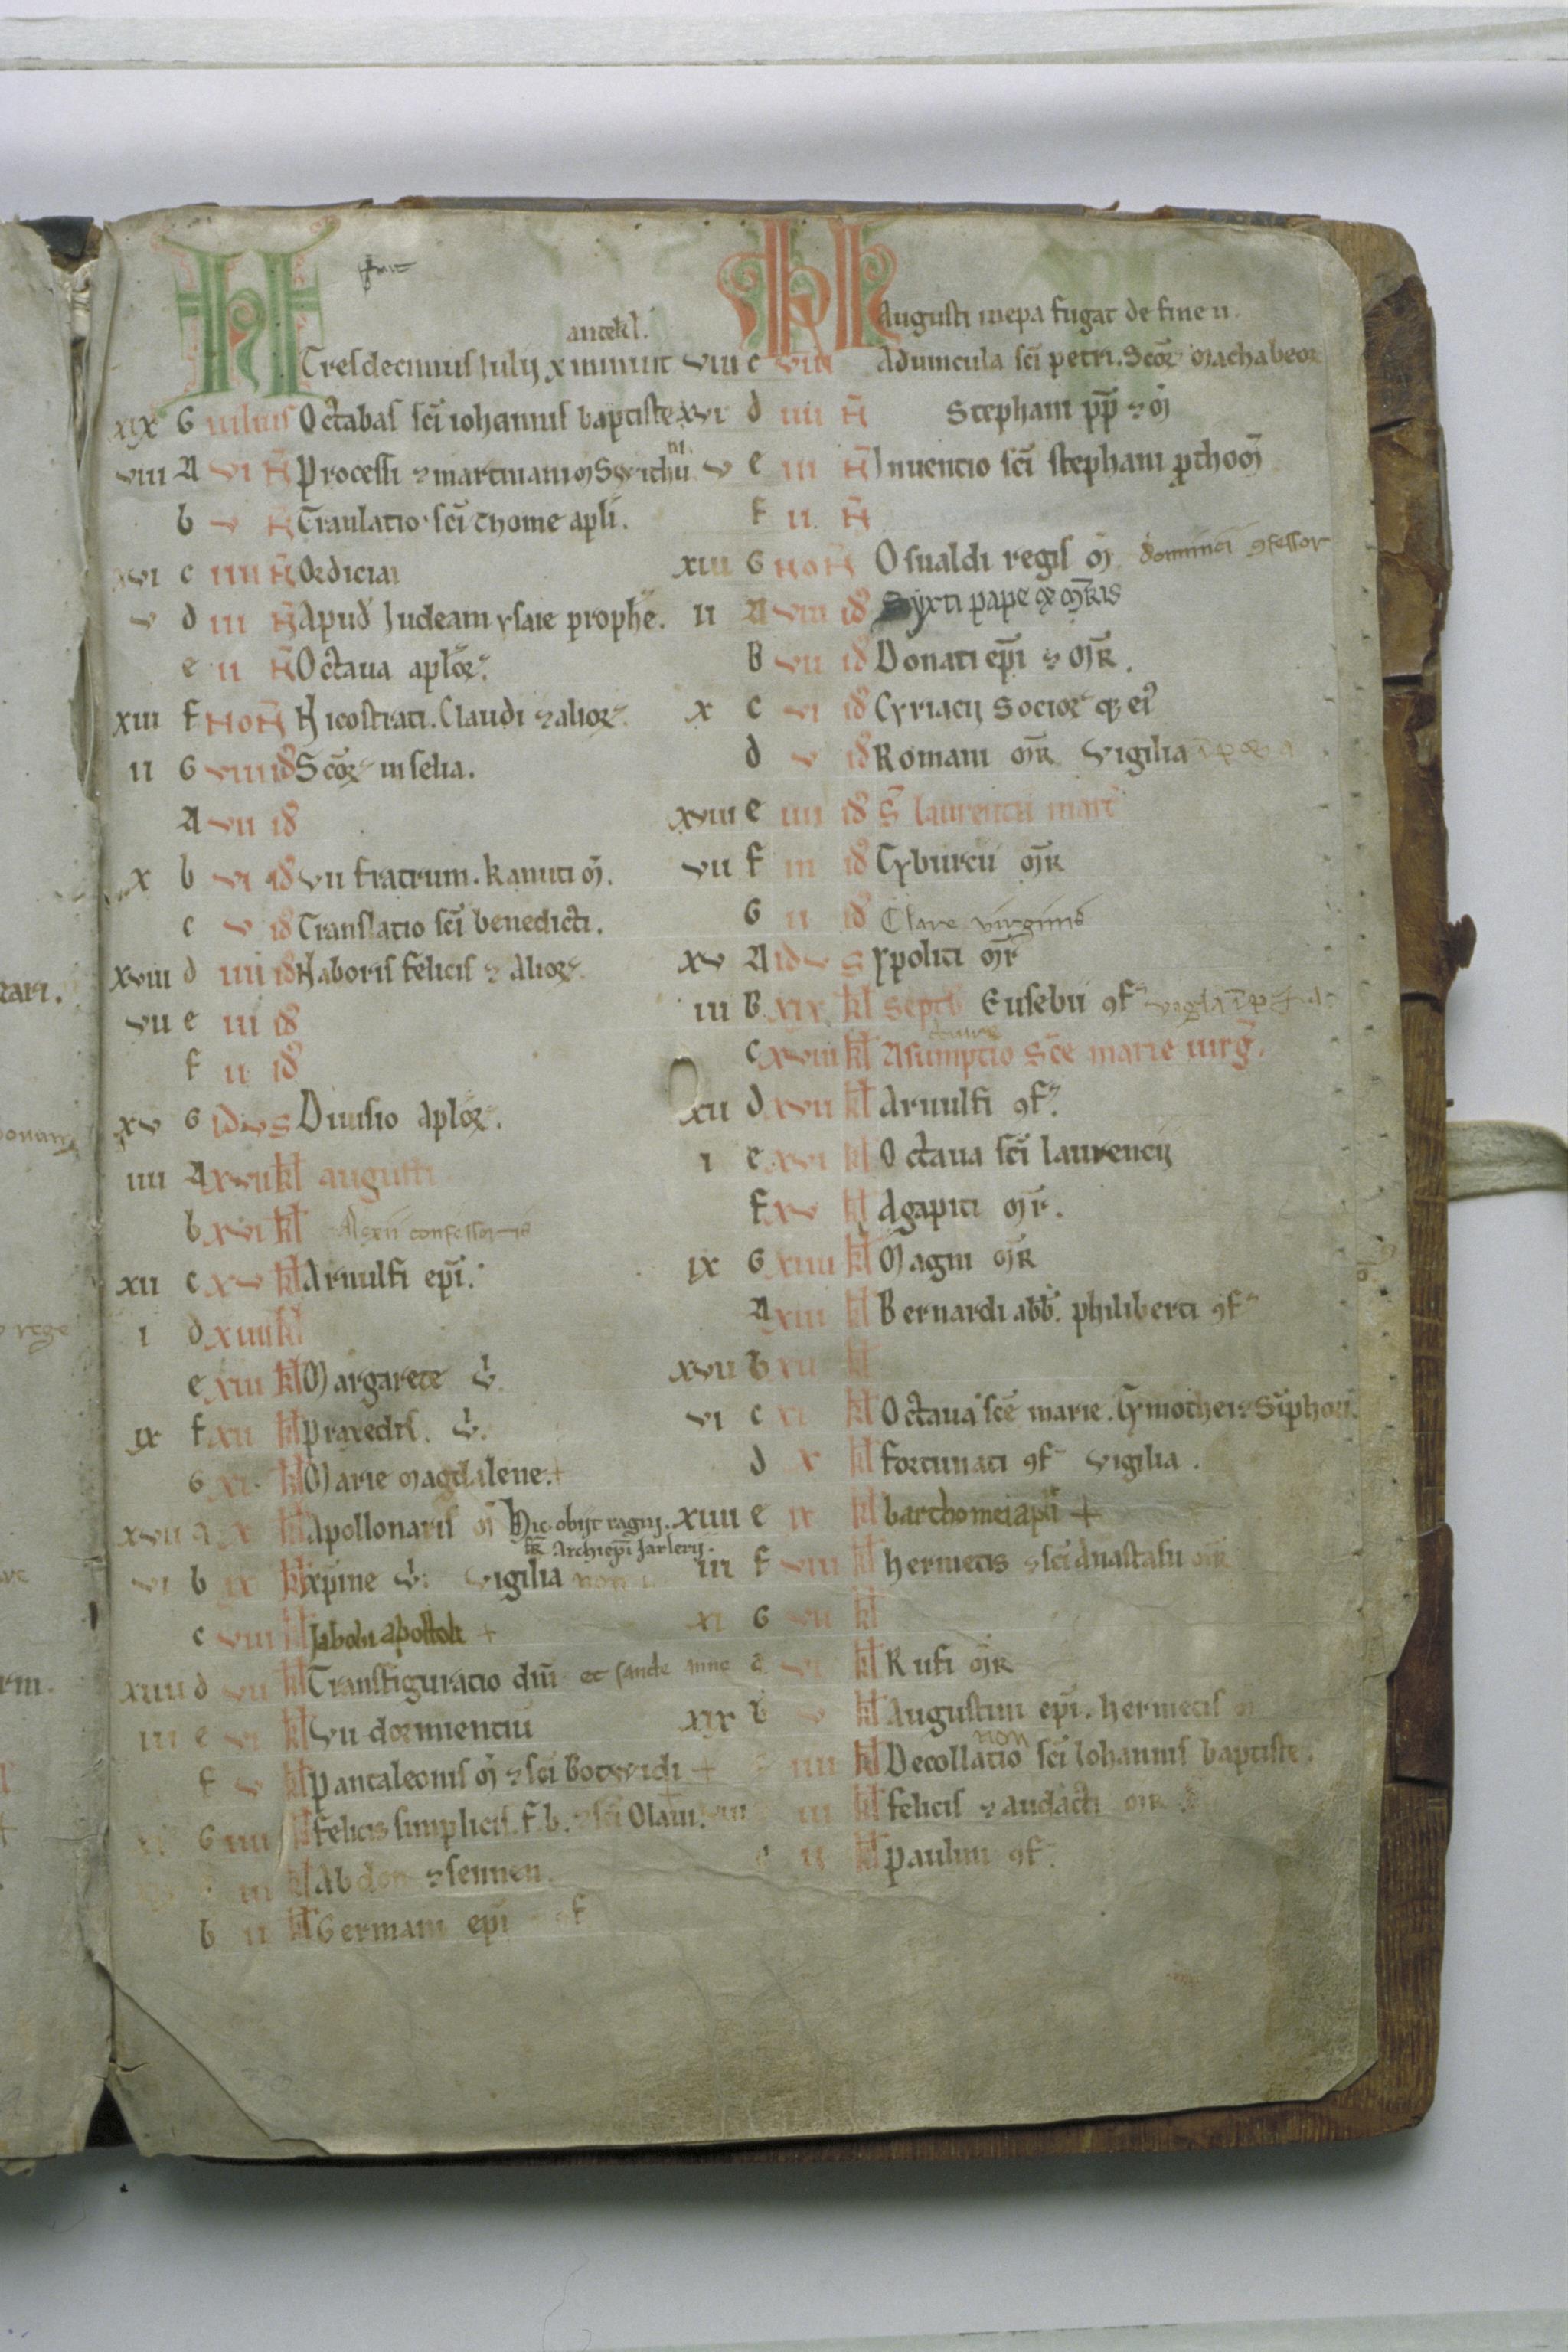 KL
antekl.
Tresdecimus iulij x innuit
xix G iulius Octabas scī iohannis baptiste
viii A vi N̄ Processi & martiniani m̄ Swithuni
b v N̄ Tranlatio scī thome apli.
xvi c iiii N̄ Ordiciai
v d iii N̄ Apud Iudeam ysaie prophe.
e ii N̄ Octaua aplor.
xiii f Non̄ Nicostrati. Claudi & alior
ii G viii id Scōr inselia.
A vii id
x b vi id vii fratrum. kanuti m̄.
c v id Translatio scī benedicti.
xviii d iiii id Naboris felicis & alior
vii e iii id
f ii id
xv G idus Diuisio aplor.
iiii A xvii kl augusti
b xvi kl Alexii confessoris
xii c xv kl Arnulfi epī.
i d xiiii kl
e xiii kl Margarete v.
ix f xii kl praxedis. v.
G xi kl Marie magdalene. +
xvii a x kl Apollonaris m̄ Hic obijt ragn.
Archiepī Jarlerij.
vi b ix kl xpīne v: vigilia
c viii kl Jabobi apostoli +
xiiii d vii kl Transfiguratio dnī et sancte anne
iii e vi kl vii dormientiū
f v kl pantaleonis m̄ & scī botwidi +
xi G iiii kl felicis simplicis. f. b. & scī Olaui.
iii kl Abdon & sennen.
b ii kl Germani epī cf
KL
Augusti nepa fugat de fine ii.
viii c viii Aduincula scī petri. Scōr machabeor
xvi d iiii N̄ Stephani pp̄ & m̄
v e iii N̄ Inuentio scī stephani prthom̄
f ii N̄
xiii G Non̄ Osualdi regis m̄ dominici 9fessor
ii A viii id Syxti pape
B vii id Donati epī & mr̄.
x c vi id Cyriacij socior q; ei9
d v id Romani mr̄ vigilia
xviii e iiii id S̄ laurentii mart
vii f iii id Tyburcii mr̄
G ii id Clare virginis
xv A idus ypoliti mr̄
iiii B xix kl septb Eusebii 9f
c xviii kl Asumptio Scē marie uirḡ.
xii d xvii kl Arnulfi 9f.
i e xvi kl Octaua scī laurencij
f xv kl Agapiti mr̄.
ix G xiiii kl Magni mr̄
A xiii kl Bernardi abb. philiberti 9f
xvii b xii kl
vi c xi kl Octaua scē marie. Tymothei & Sīphori.
d x kl fortunati 9f vigilia.
xiiii e ix kl barthomei apli +
iii f viii kl hermetis & scī Anastasii mr̄
xi G vii kl
a vi kl Rufi mr̄
xix b v kl Augustini epī. hermetis m̄
non
iiii kl Decollatio scī Iohannis baptiste.
viii iii kl felicis & audacti mr̄
ii kl paulini 9f.